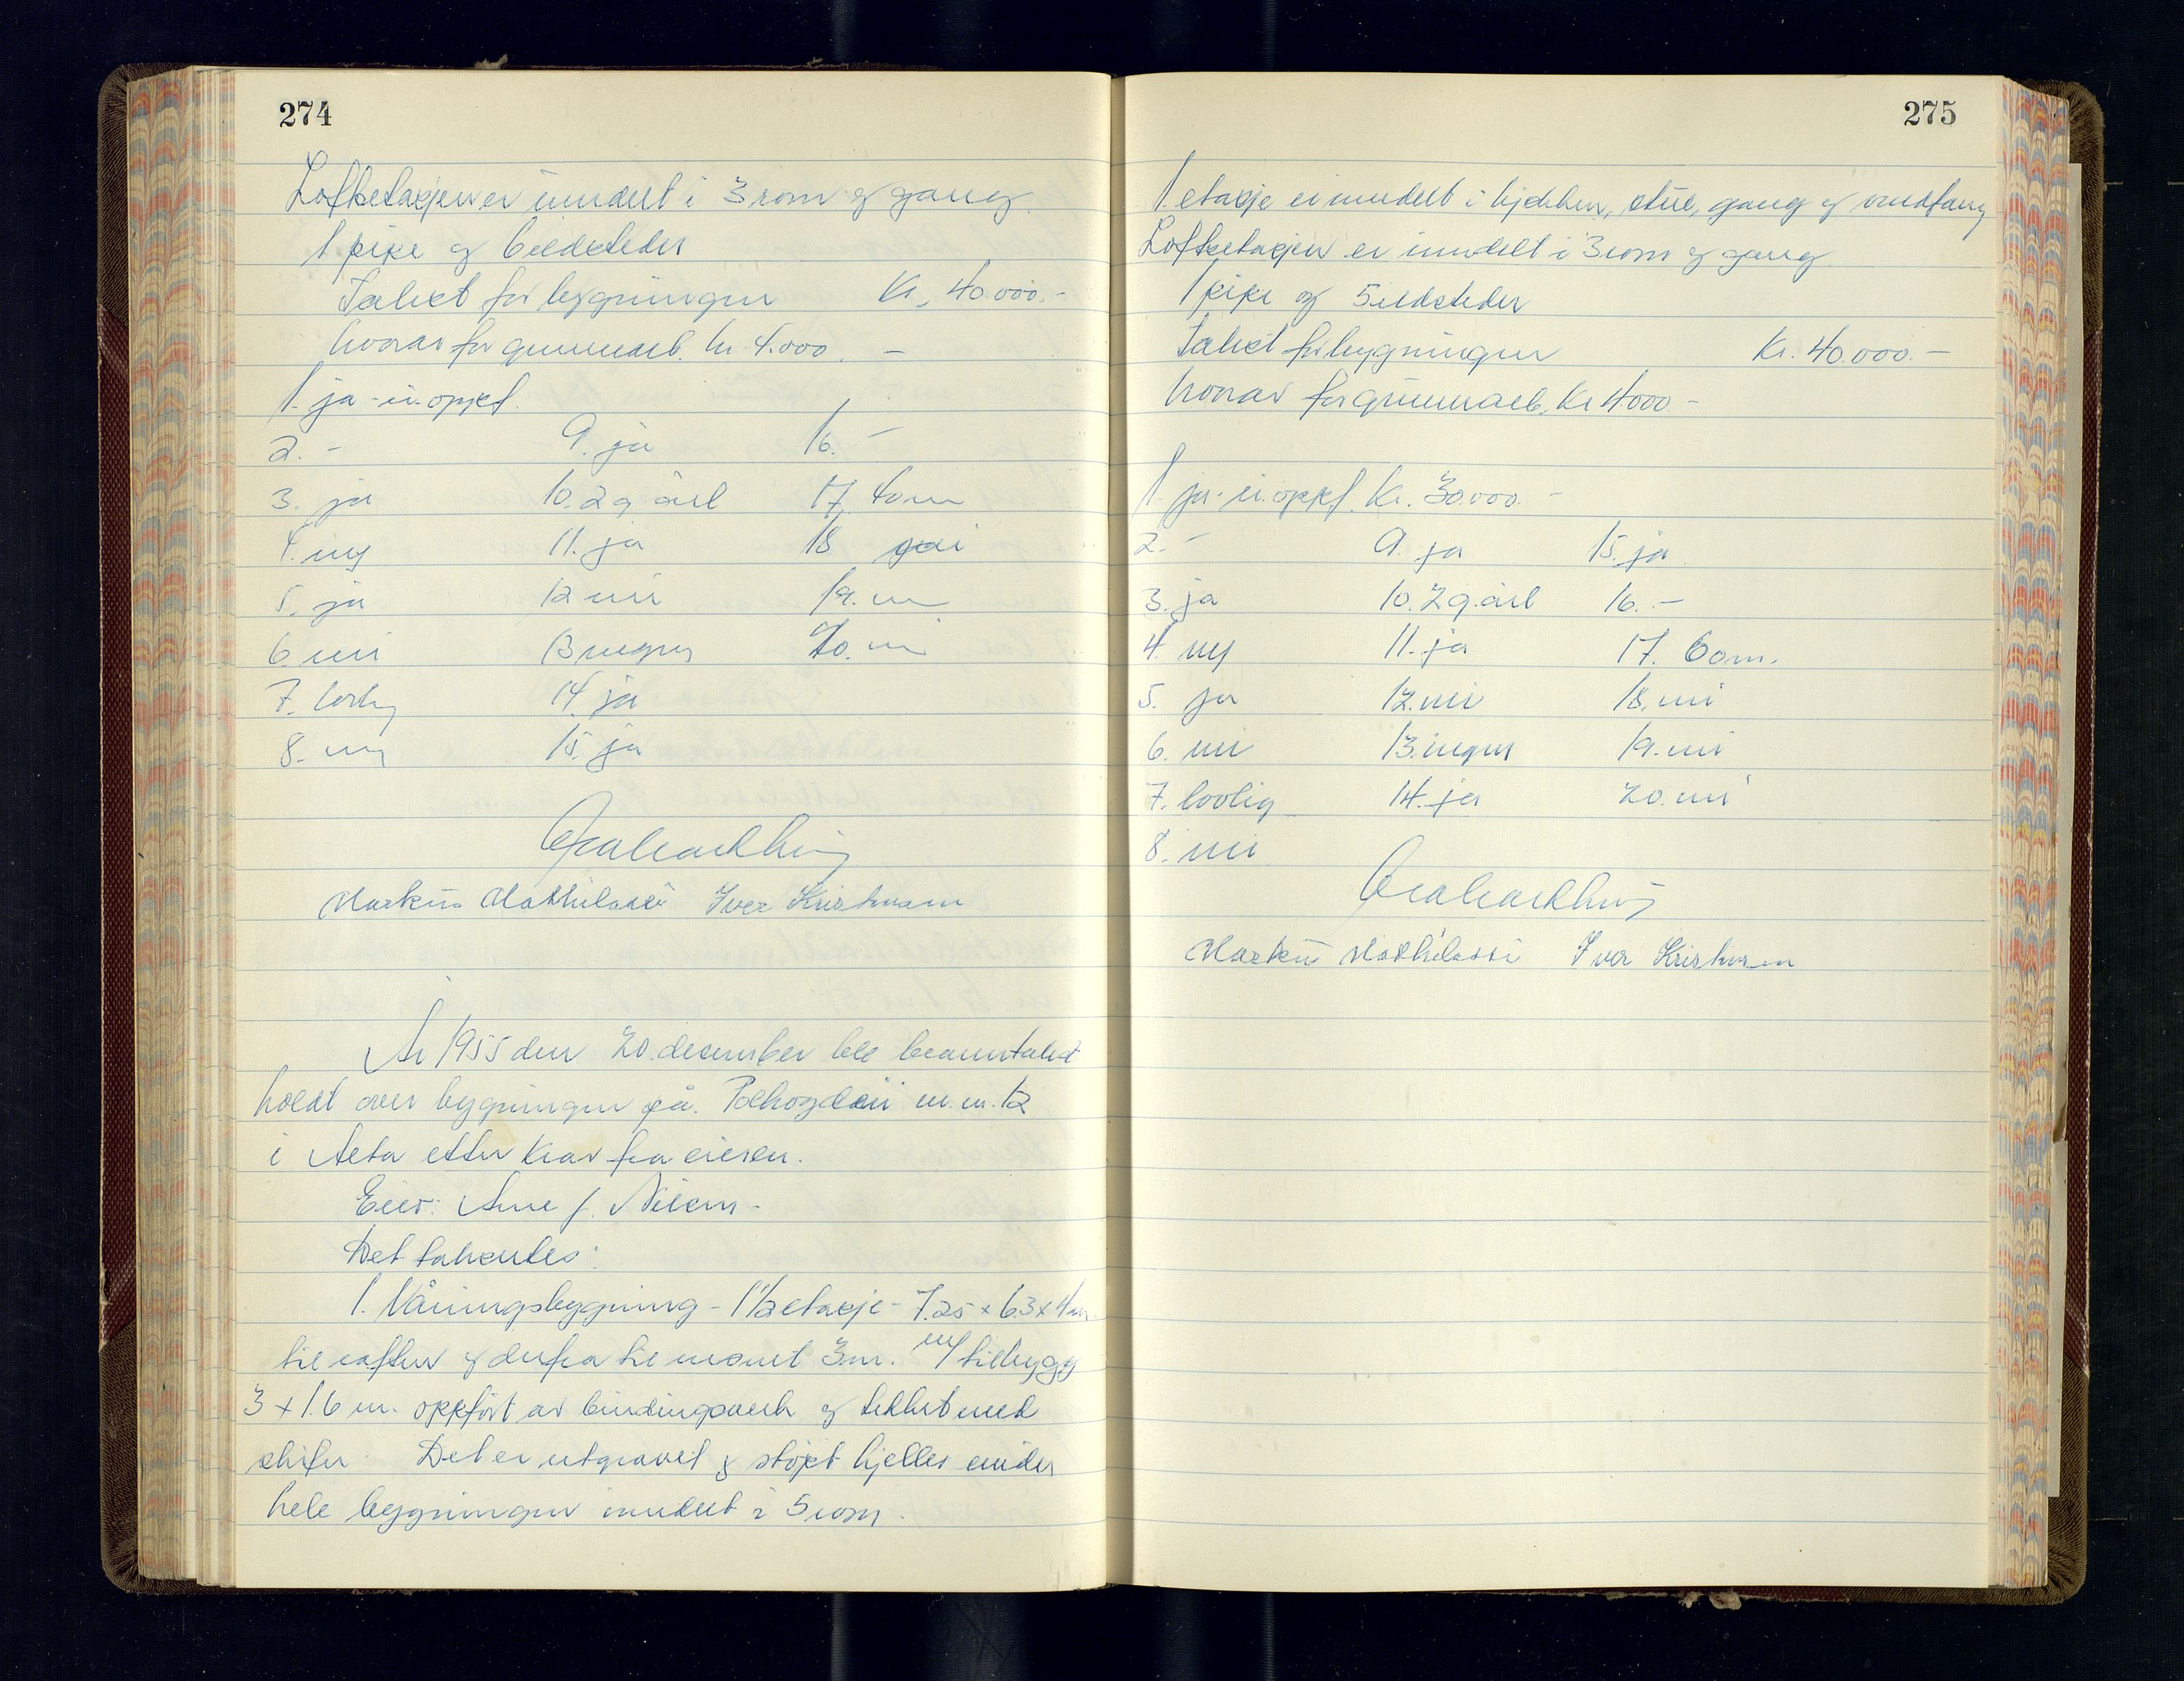 274
Loftsetasjen er inndelt i 3 rom og gang
1 pipe og 6 ildsteder
Takst for bygningen Kr. 40.000.-
hvorav for grunnarb. kr. 4.000. -
1. ja - er. oppf.
2. - 9. ja 16. -
3. ja 10. 2 g årl 17. 4 om
4. ny 11. ja 18 nei
5. ja 12 nei 19. nei
6 nei 13 ingen 20. nei
7. lovlig 14. ja
8. nei 15. ja
Markus Mathilassi Iver Kristensen
År 1955 den 20. desember ble branntakst
holdt over bygningen på m.m. 12
i Alta etter krav fra eieren.
Eier: Arne J. Nilsen.
Det taksertes:
1. Våningsbygning - 1 1/2 etasje - 7.25 x 6.3 x 4 m.
til raften og derfra til mønet 3 m. m/ tilbygg
3 x 1.6 m. oppført av bindingsverk og tekket med
skifer. Det er utgravet og støpt kjeller under
hele bygningen inndelt i 5 rom.
275
1. etasje er inndelt i kjøkken, stue, gang og vindfang
Loftsetasjen er inndelt i 3 rom og gang
1 pipe og 5 ildsteder
Takst for bygningen Kr. 40.000.-
hvorav for grunnarb. Kr 4.000 -
1. ja - er. oppf. Kr. 30.000. -
2. - 9. ja 15. ja
3. ja 10. 2 g. årl 16. -
4. ny 11. ja 17. 6 om.
5. ja 12. nei 18. nei
6. nei 13. ingen 19. nei
7. lovlig 14. ja 20. nei
8. nei
Markus Mathilassi Iver Kristensen